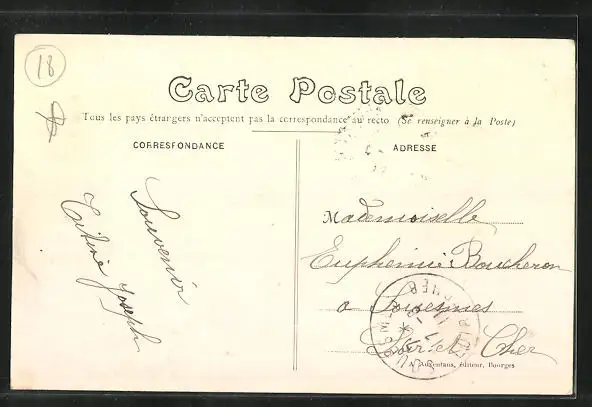 18
Carte Postale
Tous les pays étrangers n'acceptent pas la correspondance au recto (Se renseigner à la Poste)
CORRESPONDANCE
ADRESSE
Souvenir
Titine Joseph
Mademoiselle
Euphemie Boucheron
a Souesmes
Loir et Cher
A. Auxenfans, éditeur, Bourges